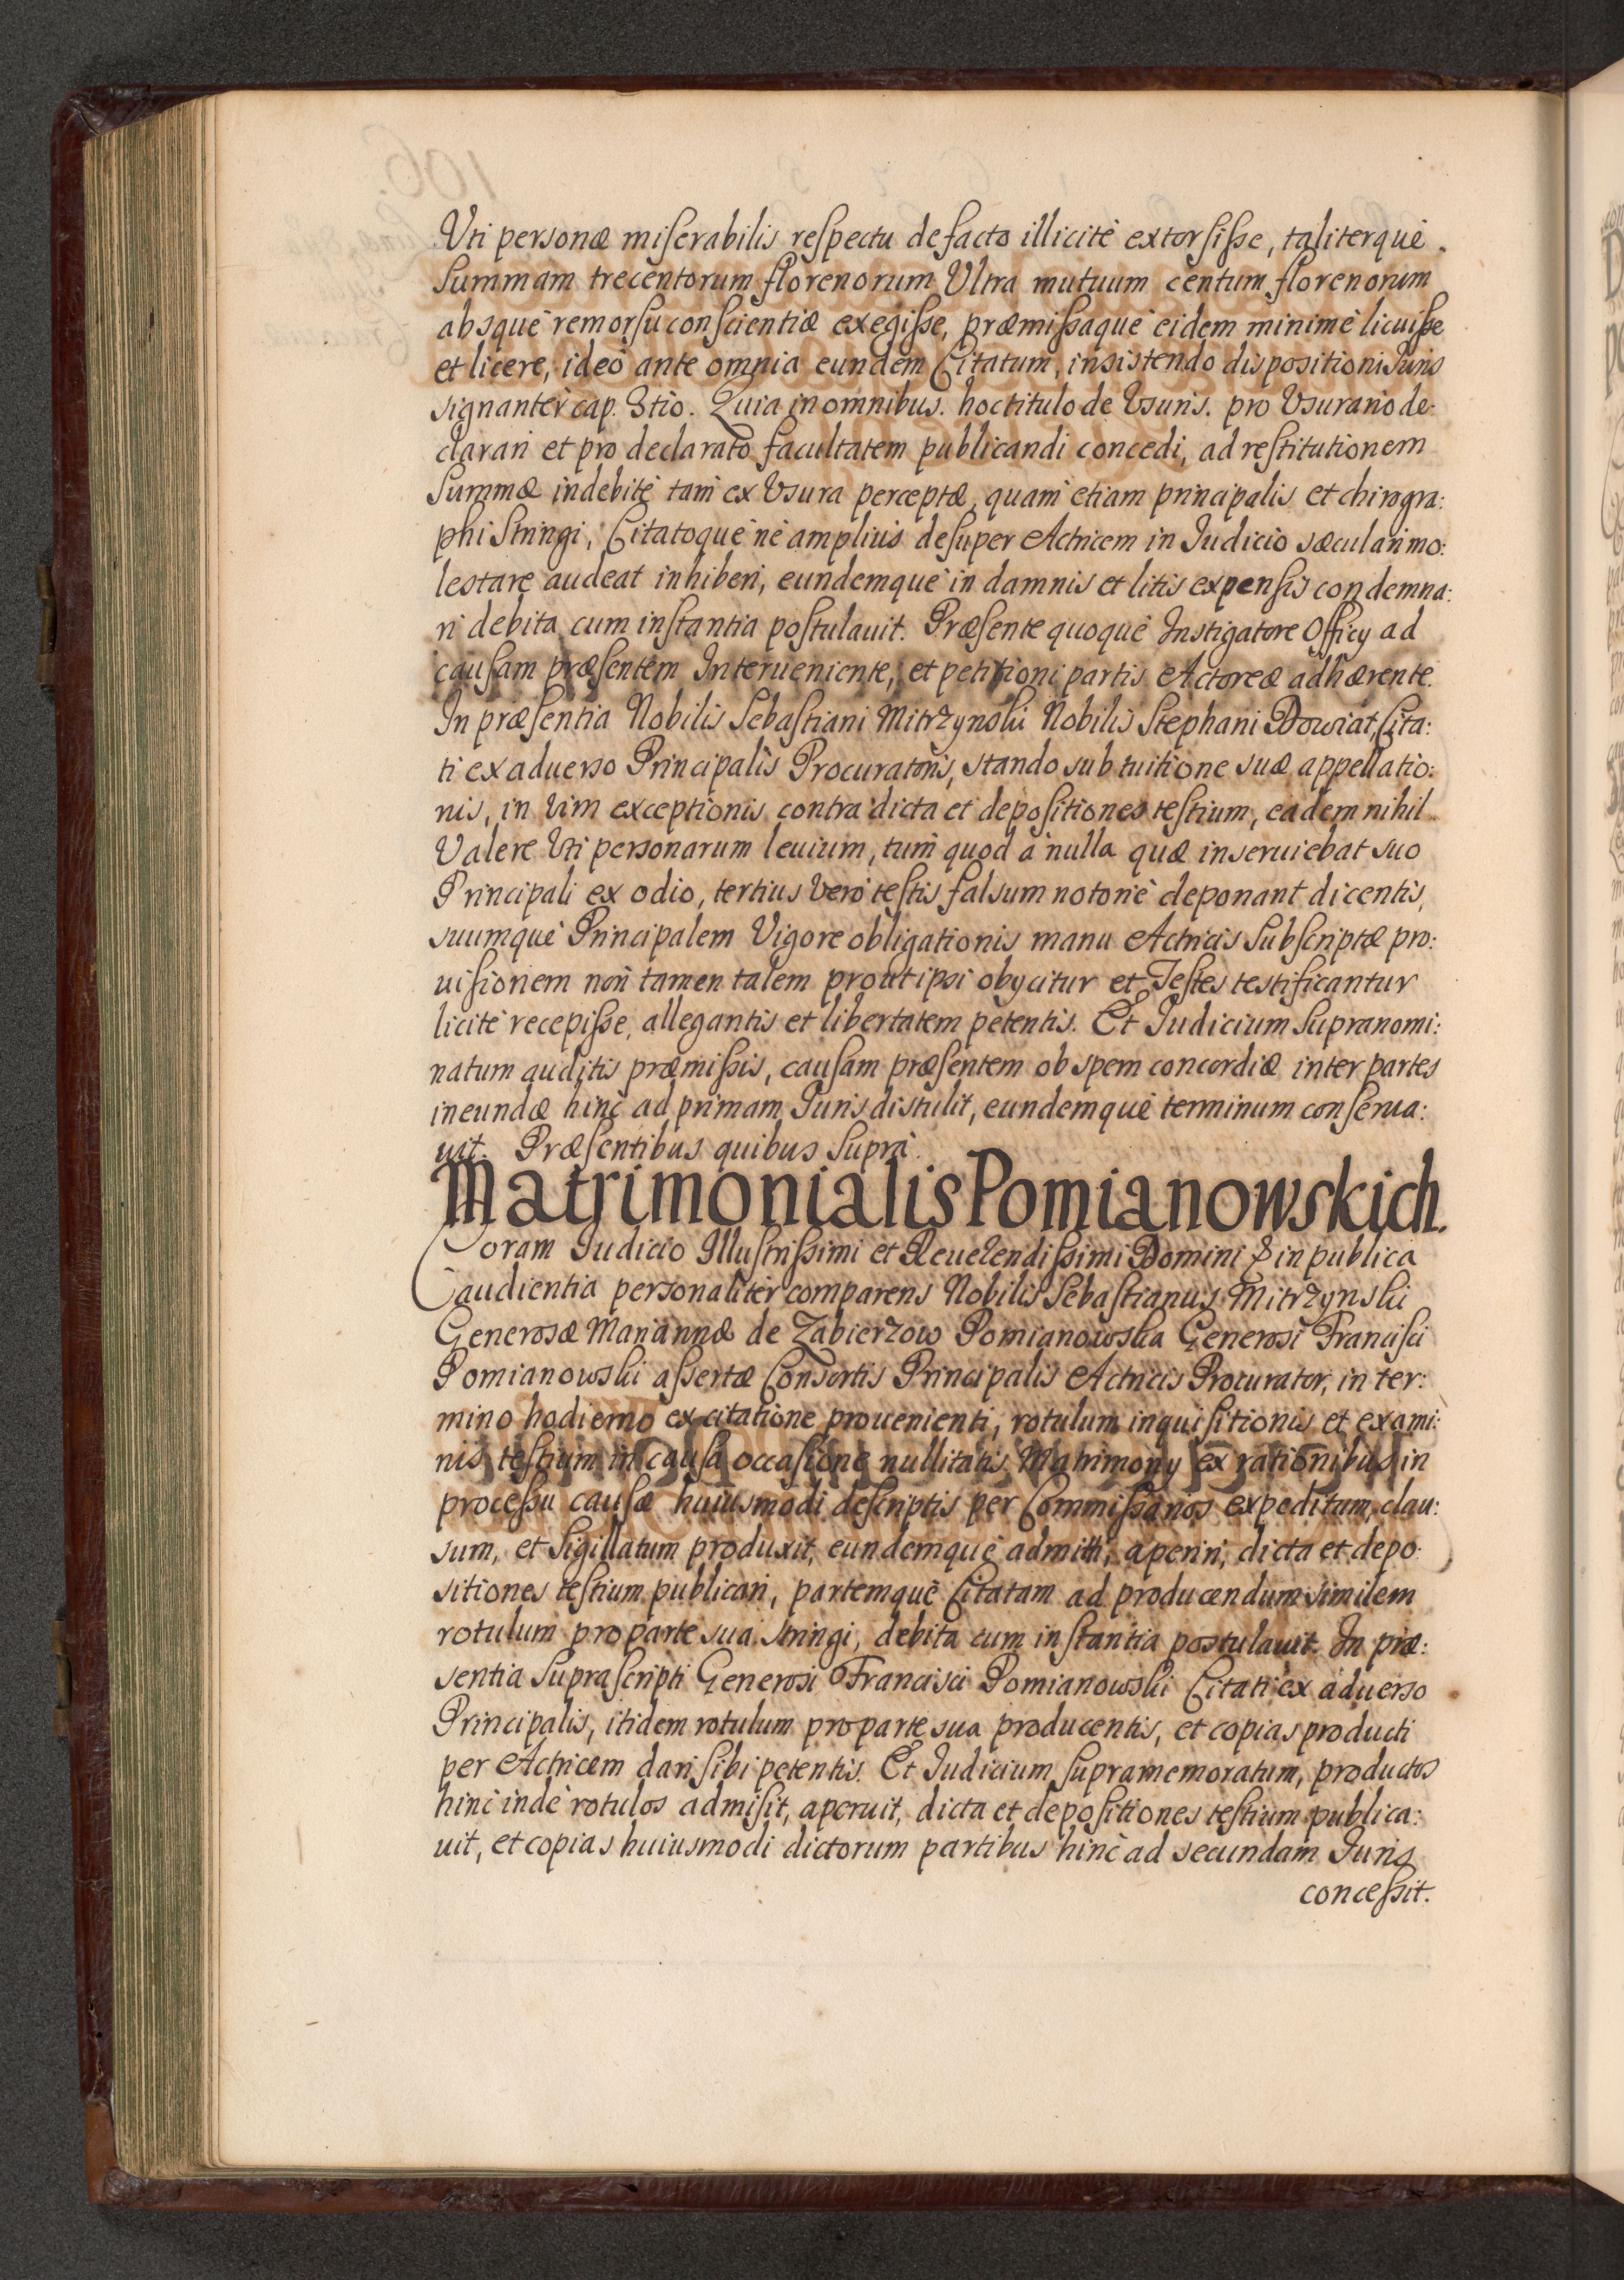 Vti personæ miserabilis respectu de facto illicitè extorsisse, taliterquè
Summam trecentorum florenorum Vltra mutuum centum florenorum
absquè remorsu conscientiæ exegisse, præmissaquè eidem minimè licuisse
et licere, ideò ante omnia eundem Citatum, insistendo dispositioni Iuris
signantèr cap. 3tio. Quia in omnibus. hoc titulo de Vsuris. pro Vsurario de-
clarari et pro declarato facultatem publicandi concedi, ad restitutionem
Summæ indebitè tam ex Vsura perceptæ, quam etiam principalis et chirogra:
phi Stringi, Citatoquè nè amplius desuper Actricem in Iudicio sæculari mo:
lestare audeat inhiberi, eundemquè in damnis et litis expensis condemna:
ri debita cum instantia postulauit. Præsente quoquè Instigatore Officy ad
causam præsentem Interueniente, et petitioni partis Actoreæ adhærente.
In præsentia Nobilis Sebastiani Mitrzynski Nobilis Stephani Dowiat, Cita:
ti ex aduerso Principalis Procuratoris, stando sub tuitione suæ appellatio:
nis, in Vim exceptionis contra dicta et depositiones testium, eadem nihil
Valere Vti personarum leuium, tum quod à nulla quæ inseruiebat suo
Principali ex odio, tertius Verò testis falsum notoriè deponant dicentis,
suumquè Principalem Vigore obligationis manu Actricis Subscriptæ pro:
uisionem non tamen talem prout ipsi obycitur et Testes testificantur
licitè recepisse, allegantis et libertatem petentis. Et Iudicium Supranomi:
natum auditis præmissis, causam præsentem ob spem concordiæ inter partes
ineundæ hinc ad primam Iuris distulit, eundemquè terminum conserua:
uit. Præsentibus quibus Suprà.
Matrimonialis Pomianowskich.
Coram Iudicio Illustrissimi et Reuerendissimi Domini & in publica
audientia personalitèr comparens Nobilis Sebastianus Mitrzynski
Generosæ Mariannæ de Zabierzow Pomianowska Generosi Francisci
Pomianowski assertæ Consortis Principalis Actricis Procurator, in ter:
mino hodierno ex citatione prouenienti, rotulum inquisitionis et exami:
nis testium in causa occasione nullitatis Matrimony ex rationibus in
processu causæ huiusmodi descriptis per Commissarios expeditum, clau:
sum, et Sigillatum produxit, eundemquè admitti, aperiri, dicta et depo:
sitiones testium publicari, partemquè Citatam ad producendum similem
rotulum pro parte sua stringi, debita cum instantia postulauit. In præ:
sentia Suprascripti Generosi Francisci Pomianowski Citati ex aduerso
Principalis, itidem rotulum pro parte sua producentis, et copias producti
per Actricem dari sibi petentis. Et Iudicium supramemoratum, productos
hinc indè rotulos admisit, aperuit, dicta et depositiones testium publica:
uit, et copias huiusmodi dictorum partibus hinc ad secundam Iuris
concessit.